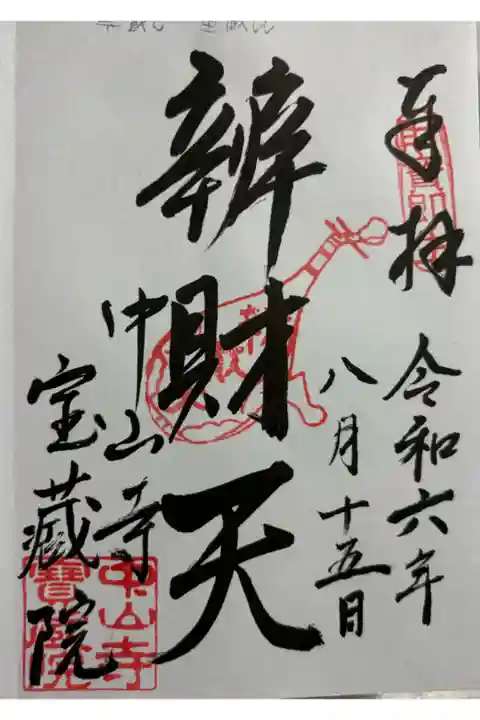 奉拝
令和六年
八月十五日
辨財天
中山寺
宝蔵院
中山寺
寳蔵院